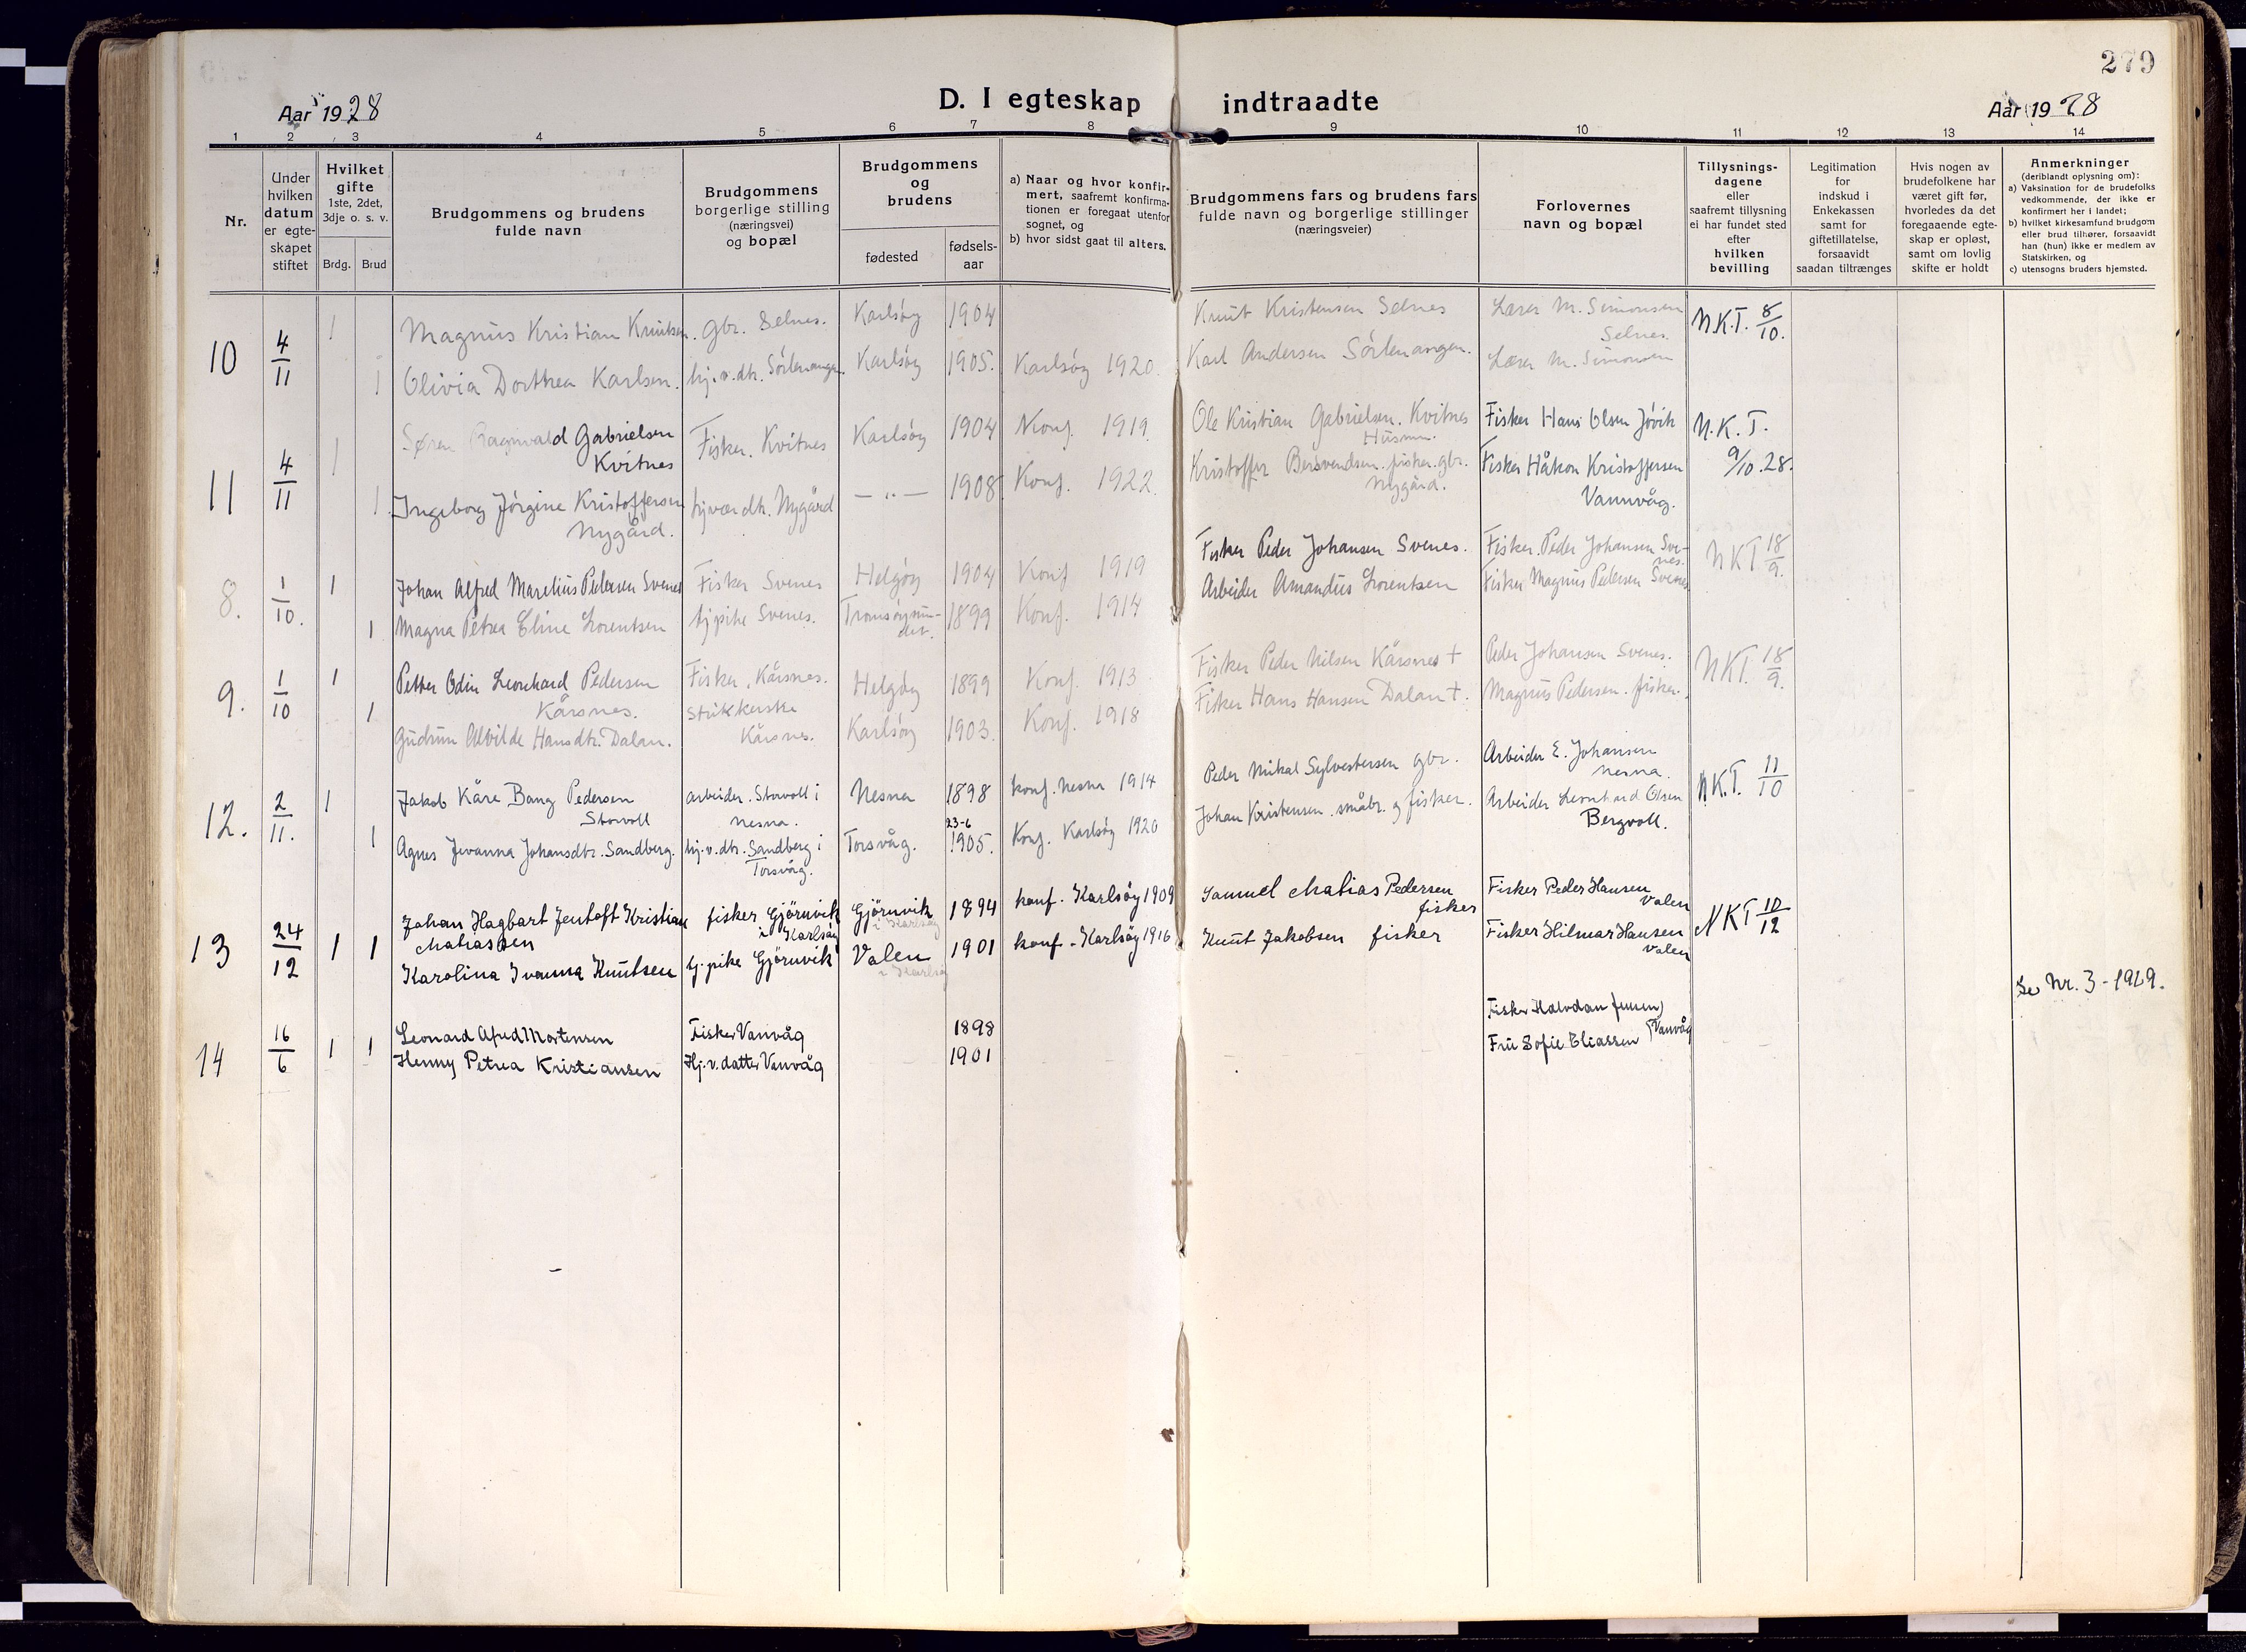 279
D. I egteskap indtraadte
Aar 1928
Aar 1928
1 2 3 4 5 6 7 8 9 10 11 12 13 14
Nr.
Under
hvilken
datum
er egte-
skapet
stiftet
Hvilket
gifte
1ste, 2det,
3dje o. s. v.
Brdg. Brud
Brudgommens og brudens
fulde navn
Brudgommens
borgerlige stilling
(næringsvei)
og bopæl
Brudgommens
og
brudens
fødested
fødsels-
aar
a) Naar og hvor konfir-
mert, saafremt konfirma-
tionen er foregaat utenfor
sognet, og
b) hvor sidst gaat til alters.
Brudgommens fars og brudens fars
fulde navn og borgerlige stillinger
(næringsveier)
Forlovernes
navn og bopæl
Tillysnings-
dagene
eller
saafremt tillysning
ei har fundet sted
efter
hvilken
bevilling
Legitimation
for
indskud i
Enkekassen
samt for
giftetillatelse,
forsaavidt
saadan tiltrænges
Hvis nogen av
brudefolkene har
været gift før,
hvorledes da det
foregaaende egte-
skap er opløst,
samt om lovlig
skifte er holdt
Anmerkninger
(deriblandt oplysning om):
a) Vaksination for de brudefolks
vedkommende, der ikke er
konfirmert her i landet;
b) hvilket kirkesamfund brudgom
eller brud tilhører, forsaavidt
han (hun) ikke er medlem av
Statskirken, og
c) utensogns bruders hjemsted.
10 4/11 1 Magnus Kristian Knutsen. Gbr. Selnes. Karlsöy 1904 Knut Kristensen Selnes Lærer M. Simonsen N.K.T. 8/10.
Selnes.
1 Olivia Dorthea Karlsen. hj.v.dtr. Sörlenangen. Karlsöy 1905. Karlsöy 1920. Karl Andersen Sörlenangen. Lærer M. Simonsen
11 4/11 1 Søren Ragnvald Gabrielsen Fisker. Kvitnes Karlsöy 1904 Konf. 1919. Ole Kristian Gabrielsen. Kvitnes Fisker Hans Olsen Jövik N.K.T.
Kvitnes Husmn. 9/10.28.
1 Ingeborg Jörgine Kristoffersen hj.vær.dtr. Nygård — " — 1908 Konf. 1922. Kristoffer Bersvendsen. fisker. gbr. Fisker Håkon Kristoffersen
Nygård. Nygård. Vannvåg.
8. 1/10. 1 Johan Alfred Marelius Pedersen Svenes Fisker Svenes Helgöy 1904 Konf 1919 Fisker Peder Johansen Svenes. Fisker. Peder Johansen Sve- NKT 18/9.
nes.
1 Magna Petrea Eline Lorentsen tj.pike Svenes. Tromsöysun- 1899 Konf. 1914 Arbeider Amandus Lorentsen Fisker Magnus Pedersen Svenes
det.
9. 1/10 1 Petter Odin Leonhard Pedersen Fisker, Kårsnes. Helgöy 1899 Konf. 1913 Fisker Peder Nilsen Kårsnes † Peder Johansen Svenes. NKT. 18/9.
Kårsnes. Strikkerske
1 Gudrun Alvilde Hansdtr. Dalan. Kårsnes. Karlsöy 1903. Konf. 1918 Fisker Hans Hansen Dalan †. Magnus Pedersen. fisker.
12. 2/11. 1 Jakob Kåre Bang Pedersen arbeider. Storvoll i Nesna 1898 konf. Nesna 1914 Peder Mikal Sylvestersen gbr. Arbeider E. Johansen N.K.T. 11/10
Storvoll Nesna. Nesna.
23-6
1 Agnes Jevanna Johansdtr. Sandberg. hj.v.dtr. Sandberg i Torsvåg. 1905. Konf. Karlsöy 1920 Johan Kristensen. småbr. og fisker. Arbeider Leonhard Olsen
Torsvåg. Bergvoll.
13 24/12 1 1 Johan Hagbart Jentoft Kristian fisker Gjöruvik Gjöruvik 1894 konf. Karlsöy 1909 Samuel Matias Pedersen Fisker Peder Hansen NKT 10/12
Matiassen i Karlsöy i Karlsöy fisker Valen
Karolina Ivanna Knutsen tj.pike Gjöruvik Valen 1901 konf. Karlsöy 1916 Knut Jakobsen fisker Fisker Hilmar Hansen
i Karlsöy Valen
Se Nr. 3 - 1929.
14 16/6 1 1 Leonard Afred Mortensen Fisker Vanvåg 1898 Fisker Halvdan Jensen
Henny Petrea Kristiansen Hj.v.datter Vanvåg 1901 Fru Sofie Eliassen Vanvåg